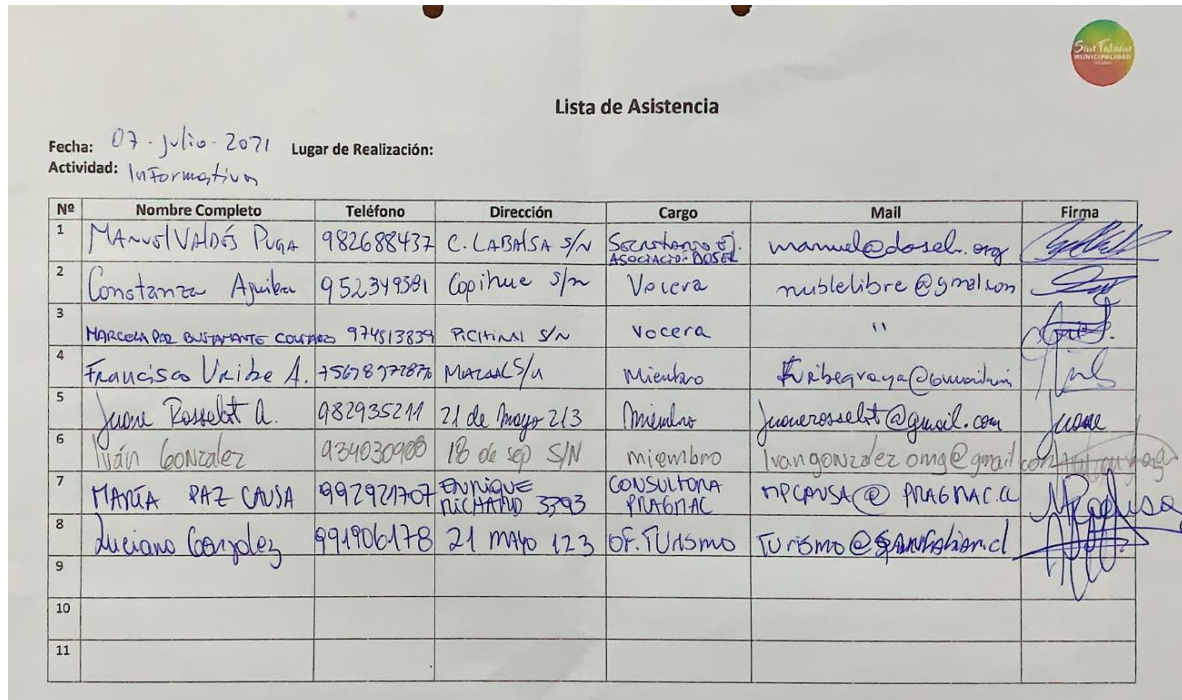 San Fabián
MUNICIPALIDAD
Lista de Asistencia
Fecha: 07-julio-2021 Lugar de Realización:
Actividad: Informativa
Nº Nombre Completo Teléfono Dirección Cargo Mail Firma
1 MANUEL VALDÉS PUGA 982688437 C. LABALSA S/N Secretario Ej. ASOCIACIO. DOSEL manuel@dosel.org
2 Constanza 952349581 Copihue s/n Vocera nublelibre@gmail.com
3 MARCELA PAZ BUSTAMANTE 974513839 S/N vocera "
4 Francisco Uribe A. S/N Miembro
5 Rosselot A. 982935211 21 de Mayo 213 Miembro
6 Iván González 934030900 18 de sep S/N miembro Ivangonzalezomg@gmail.com
7 MARÍA PAZ CAUSA 992921707 ENRIQUE 3793 CONSULTORA PRAGMAC MPCAUSA@PRAGMAC.CL
8 Luciano González 991906178 21 MAYO 123 OF. TURISMO TURISMO@SANFABIAN.cl
9
10
11